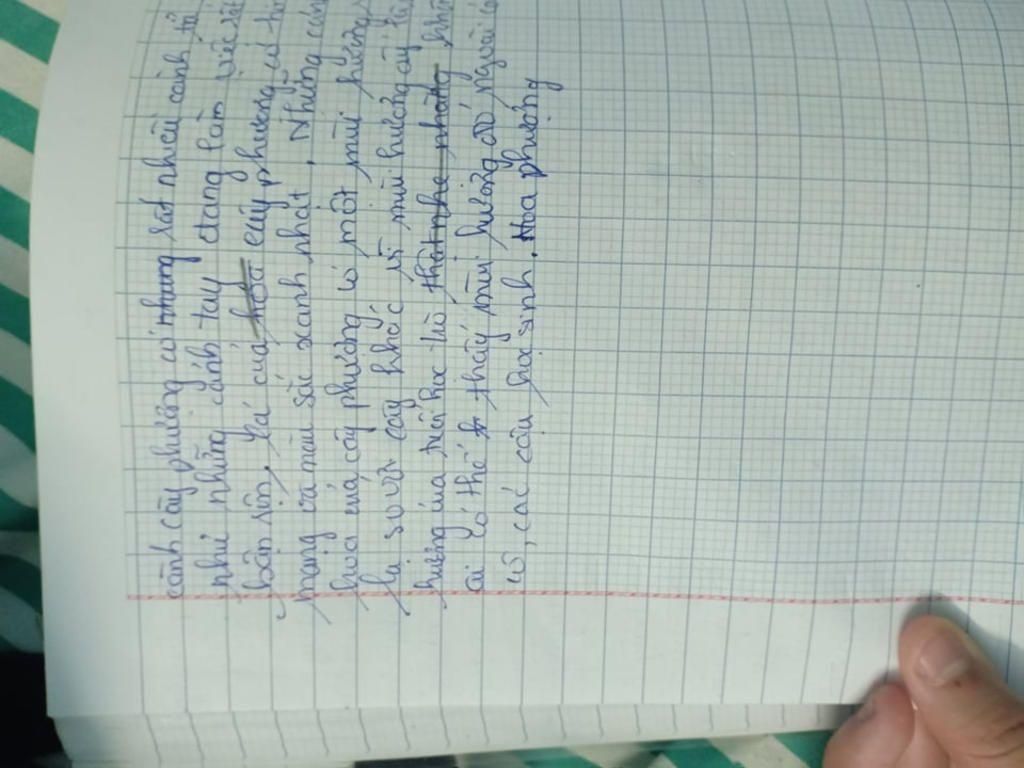 cành cây phượng có nhưng rất nhiều cành
như những cánh tay đang làm việc
bận rộn. Lá của cây phượng có
mạng và màu sắc xanh nhất. Những
hoa của cây phượng có một mùi hương
lạ so với cây khác vì mùi hương ấy
hương của tuổi học trò
ai có thể thấy mùi hương đó người
cô, các cậu học sinh. Hoa phượng